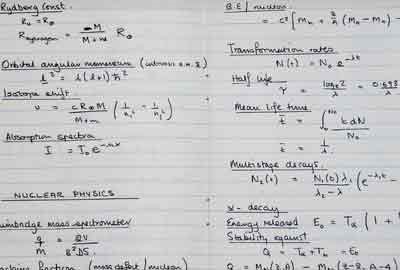 Rydberg Const.
R₀ = R∞
R_hydrogen = M / (M + m) R∞
Orbital angular momentum
l² = l(l+1)ħ²
Isotope shift.
υ = cR∞M / (M+m) (1/n₁² - 1/n₂²)
Absorption spectra
I = I₀e^(-μx)
NUCLEAR PHYSICS
mass spectrometer
q/m = 2V
(mass defect / nucleon)
B.E / nucleon
= c² [Mn + (Mn - Mn) -
Transformation rates
N(t) = N₀e^(-λt)
Half life
τ = logₑ2 / λ = 0.693
Mean life time
t̄ = ∫ t dN / N₀
t̄ = 1/λ
Multistage decays.
N₂(t) = N₁(0)λ₁ / (λ₂ - λ) (e^(-λ₁t -
α - decay
Energy released E₀ = Tα (1 +
Stability against
Q = Tα + Tb = E₀
Q = (Z,A) - (Z-2, A-4)